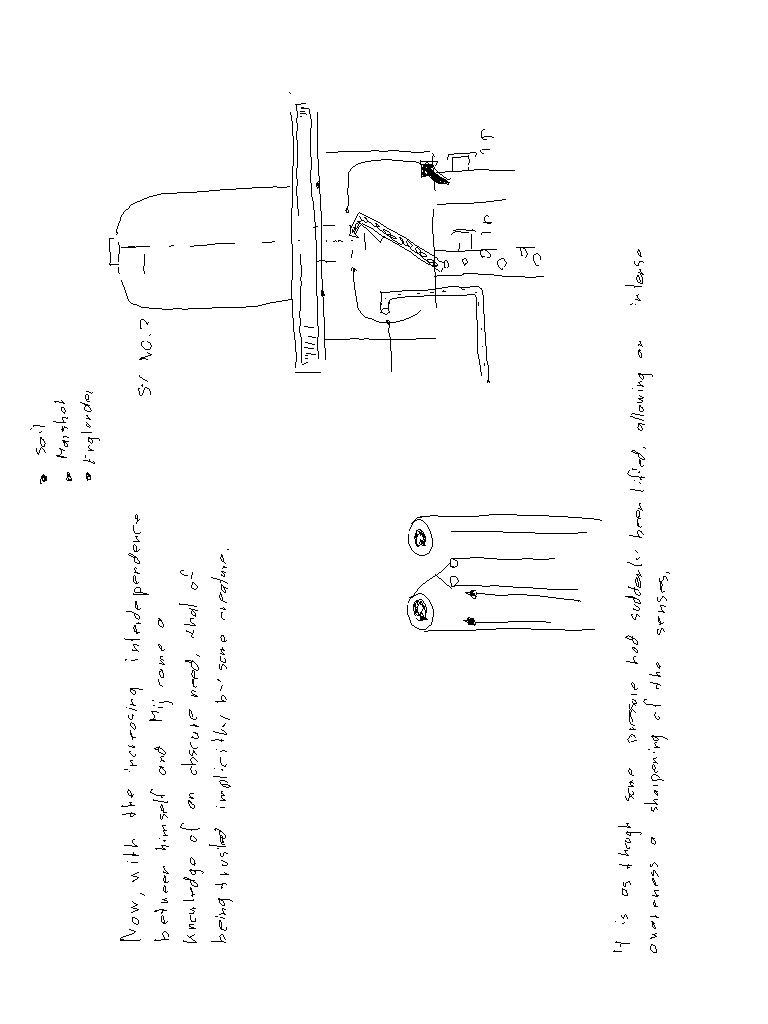 • Soil
• Marshal
• Englander
SY NO. 2
Now, with the increasing interdependence
between himself and Mij came a
knowledge of an obscure need, that of
being trusted implicitly by some creature.
It is as though some pressure had suddenly been lifted, allowing an intense
awareness a sharpening of the senses,